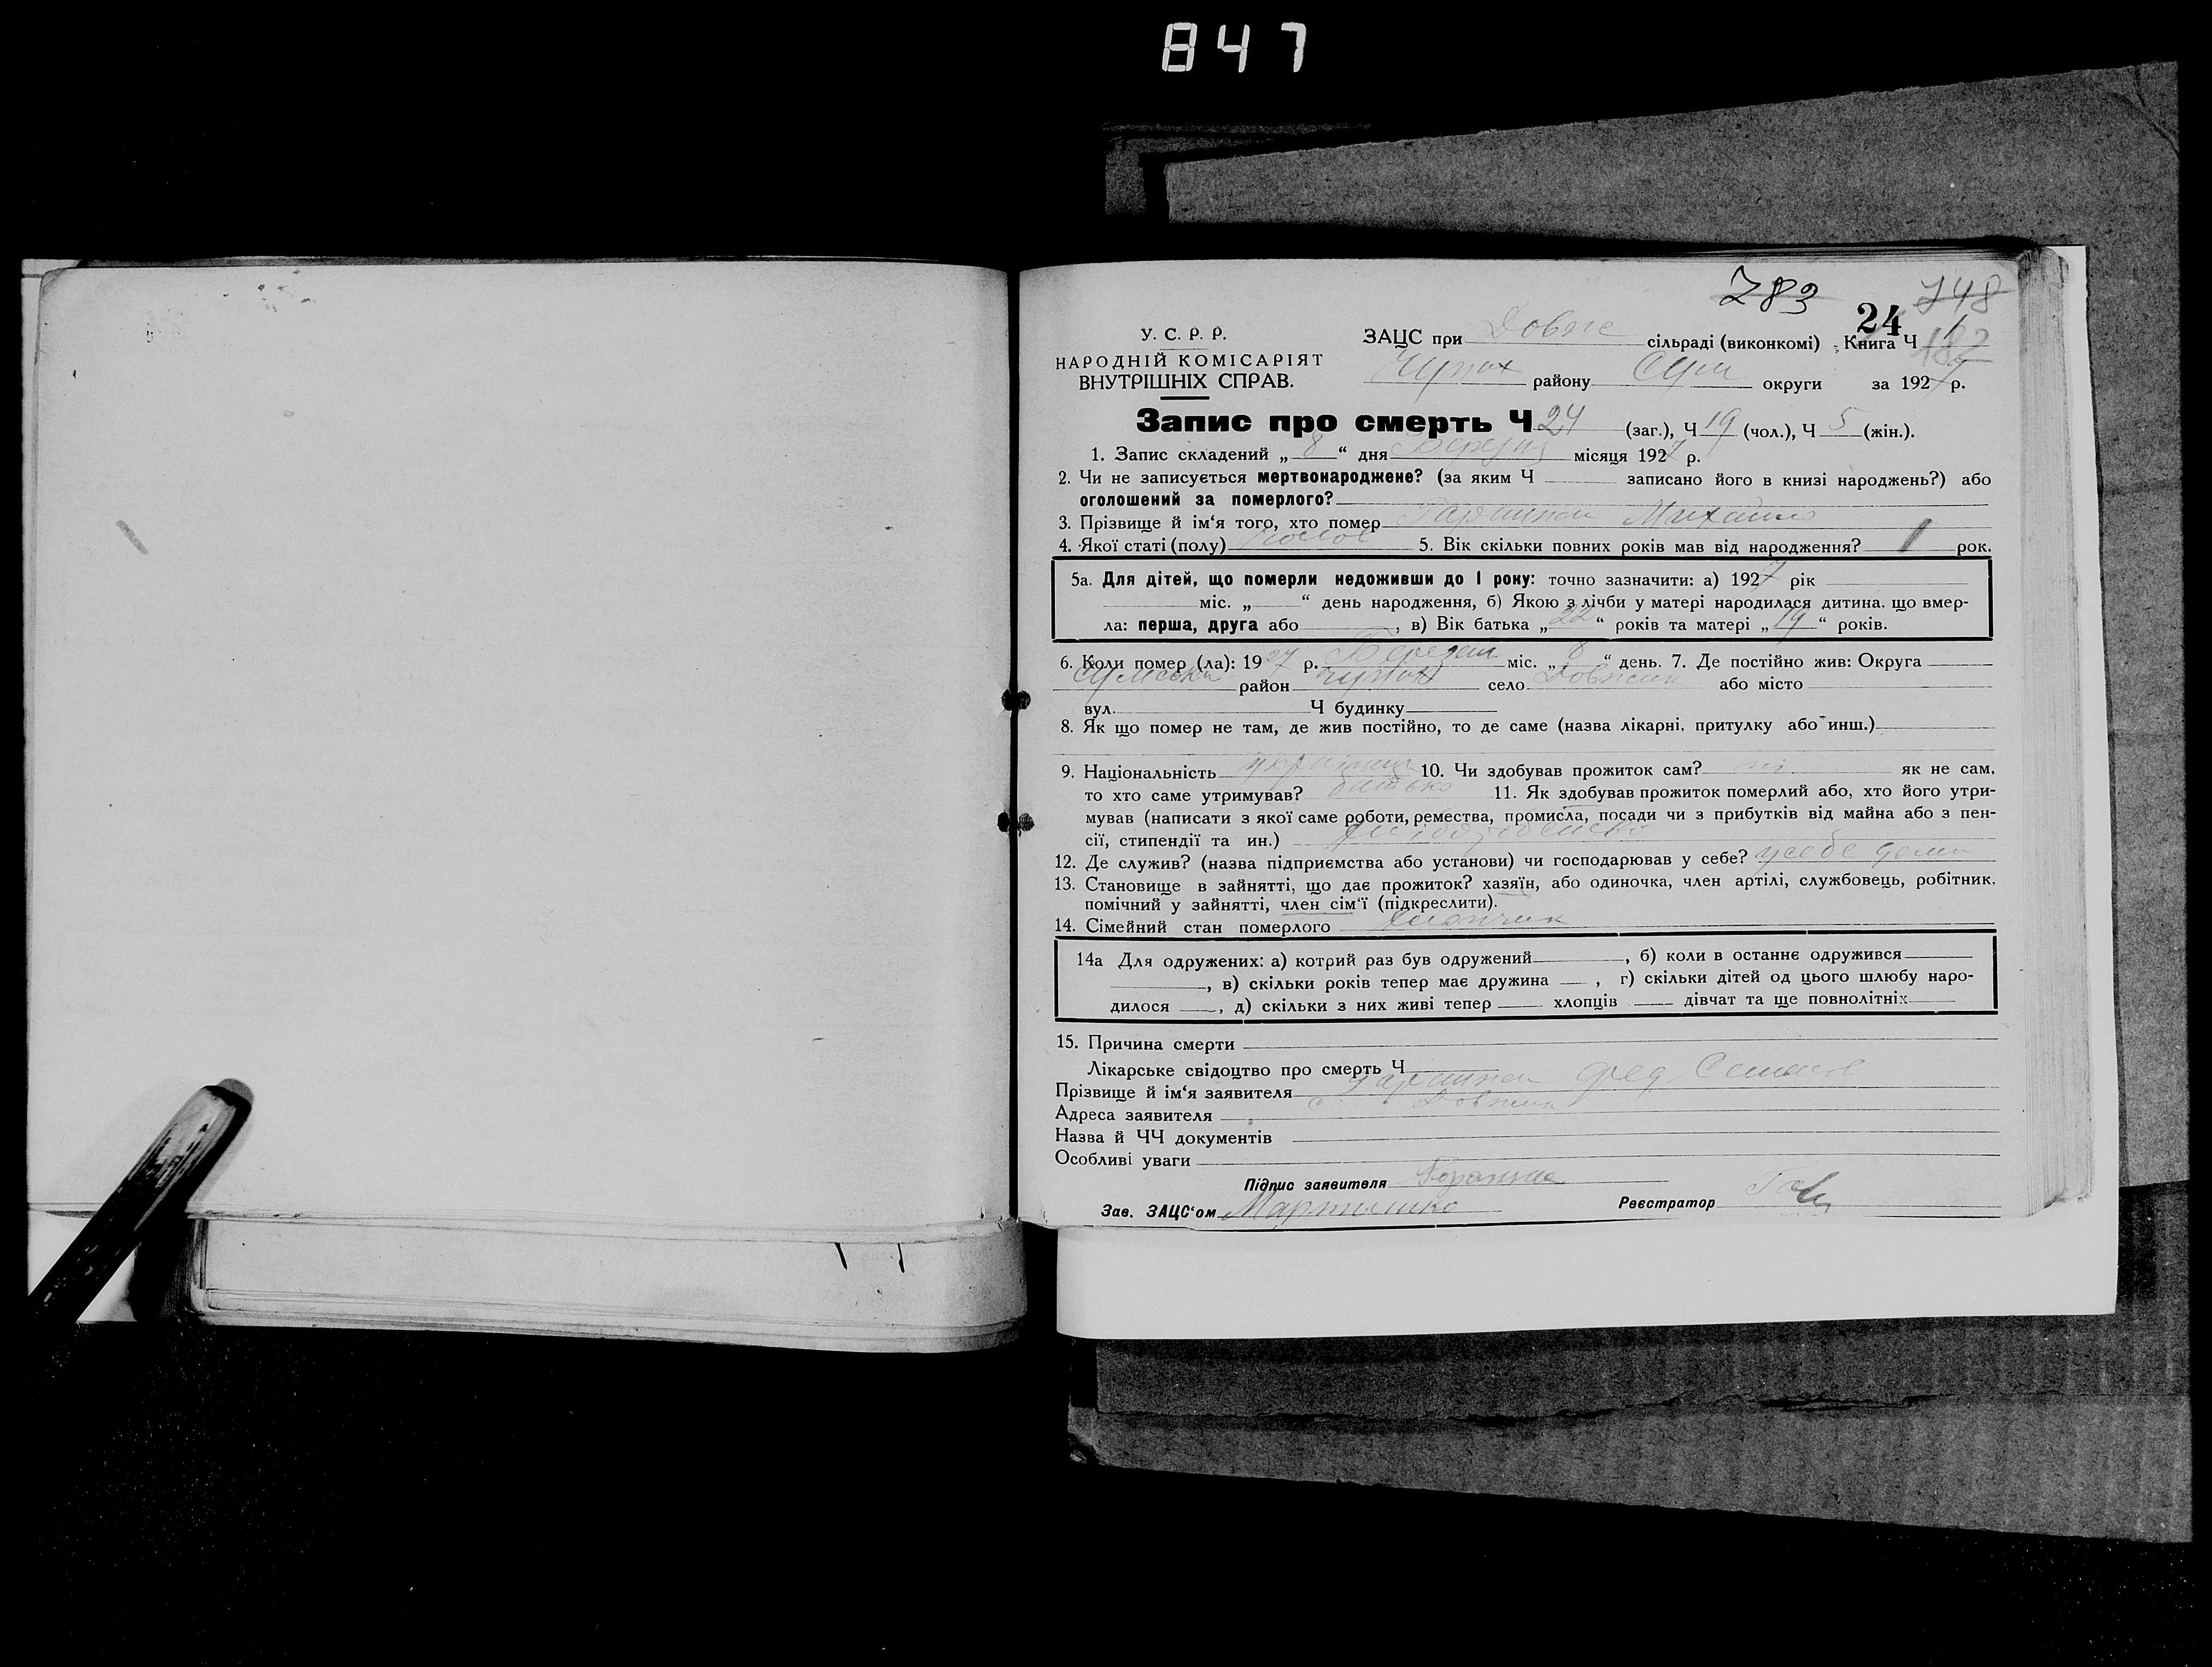 847
783 748
24
У. С. Р. Р.
НАРОДНІЙ КОМІСАРІЯТ
ВНУТРІШНІХ СПРАВ.
ЗАЦС при Довж сільраді (виконкомі) Книга Ч 1
району Сум округи за 1927 р.
Запис про смерть Ч 24 (заг.), Ч 19 (чол.), Ч 5 (жін.).
1. Запис складений „ 8 “ дня місяця 1927 р.
2. Чи не записується мертвонароджене? (за яким Ч записано його в книзі народжень?) або
оголошений за померлого?
3. Прізвище й ім‘я того, хто помер Михайло
4. Якої статі (полу) 5. Вік скільки повних років мав від народження? 1 рок.
5а. Для дітей, що померли недоживши до І року: точно зазначити: а) 1927 рік
міс. „ “ день народження, б) Якою з лічби у матері народилася дитина. що вмер-
ла: перша, друга або , в) Вік батька „ 22 “ років та матері „ 19 “ років.
6. Коли помер (ла): 1927 р. Березня міс. „ 8 “ день. 7. Де постійно жив: Округа
Сумська район село Довжик або місто
вул. Ч будинку
8. Як що помер не там, де жив постійно, то де саме (назва лікарні, притулку або инш.)
9. Національність 10. Чи здобував прожиток сам? ні як не сам,
то хто саме утримував? батько 11. Як здобував прожиток померлий або, хто його утри-
мував (написати з якої саме роботи, ремества, промисла, посади чи з прибутків від майна або з пен-
сії, стипендії та ин.)
12. Де служив? (назва підприємства або установи) чи господарював у себе? у себе дома
13. Становище в зайнятті, що дає прожиток? хазяїн, або одиночка, член артілі, службовець, робітник,
помічний у зайнятті, член сім‘ї (підкреслити).
14. Сімейний стан померлого хлопчик
14а Для одружених: а) котрий раз був одружений , б) коли в останнє одружився
, в) скільки років тепер має дружина , г) скільки дітей од цього шлюбу наро-
дилося , д) скільки з них живі тепер хлопців дівчат та ще повнолітніх
15. Причина смерти
Лікарське свідоцтво про смерть Ч
Прізвище й ім‘я заявителя Фед Семенов
Адреса заявителя с Довжик
Назва й ЧЧ документів
Особливі уваги
Підпис заявителя
Зав. ЗАЦС‘ом Мартиненко Реєстратор